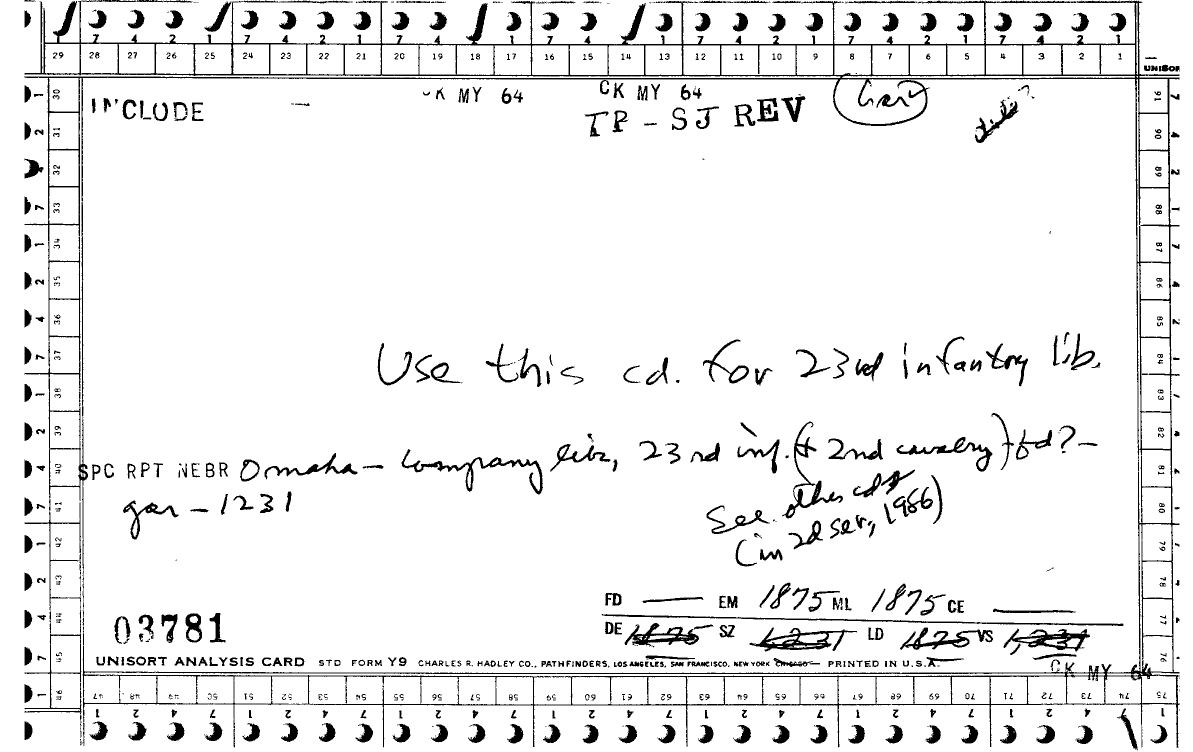 7 4 2 1 7 4 2 1 7 4 2 1 7 4 2 1 7 4 2 1 7 4 2 1 7 4 2 1
29 28 27 26 25 24 23 22 21 20 19 18 17 16 15 14 13 12 11 10 9 8 7 6 5 4 3 2 1
UNISOR
INCLUDE — CK MY 64 CK MY 64
TP - SJ REV
Use this cd. for 23rd infantry lib.
SPC RPT NEBR Omaha - Company libs, 23rd inf. (& 2nd cavalry) - fd? -
gar - 1231
See other cds
(in 2d ser, 1986)
FD — EM 1875 ML 1875 CE —
03781
DE 1875 SZ 1,231 LD 1875 VS 1,231
UNISORT ANALYSIS CARD STD FORM Y9 CHARLES R. HADLEY CO., PATHFINDERS, LOS ANGELES, SAN FRANCISCO, NEW YORK CHICAGO PRINTED IN U.S.A.
CK MY 64
30 31 32 33 34 35 36 37 38 39 40 41 42 43 44 45 46
91 90 89 88 87 86 85 84 83 82 81 80 79 78 77 76
47 48 49 50 51 52 53 54 55 56 57 58 59 60 61 62 63 64 65 66 67 68 69 70 71 72 73 74 75
1 2 4 7 1 2 4 7 1 2 4 7 1 2 4 7 1 2 4 7 1 2 4 7 1 2 4 7 1